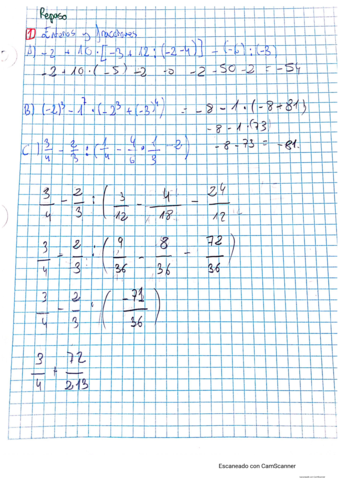 Repaso
1 Enteros y fracciones
A) -2 + 10 · [-3 + 12 : (-2-4)] - (-6) : (-3)
-2 + 10 · (-5) -2 → -2 -50 -2 = -54
B) (-2)³ - 1⁷ · (-2³ + (-3)⁴) = -8 - 1 · (-8+81)
-8 - 1 · (73)
-8 - 73 = -81
C) 3/4 - 2/3 : (1/4 - 4/6 · 1/3 - 2)
3/4 - 2/3 : (3/12 - 4/18 - 24/12
3/4 - 2/3 : (9/36 - 8/36 - 72/36)
3/4 - 2/3 : (-71/36)
3/4 + 72/213
Escaneado con CamScanner